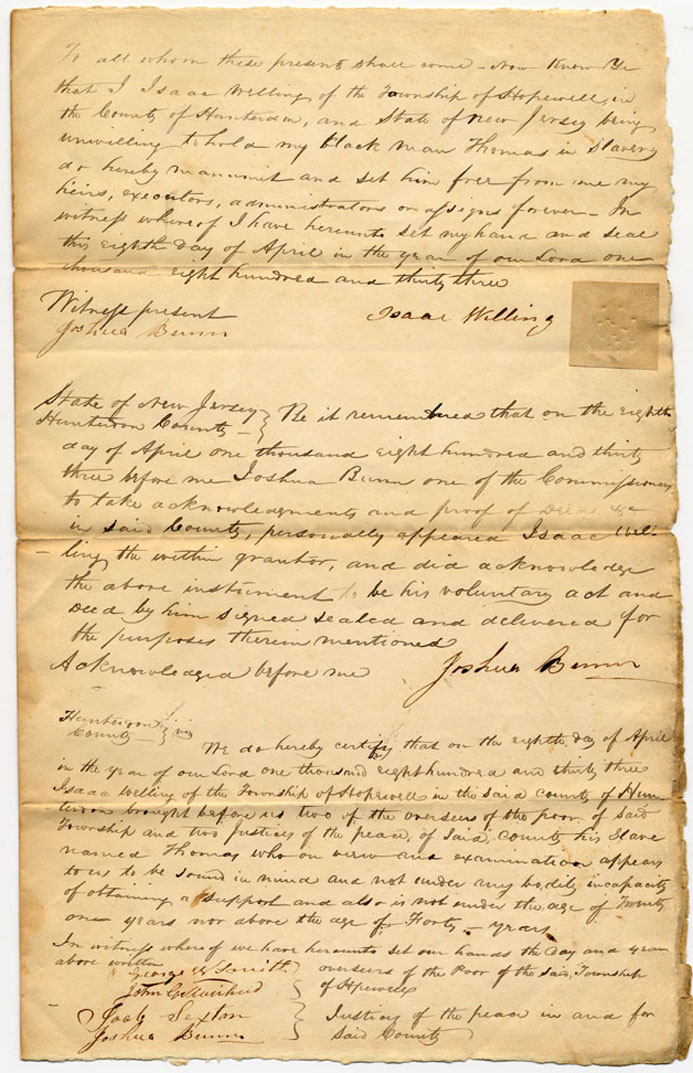 To all whom these presents shall come – Now Know Ye
that I Isaac Welling of the Township of Hopewell, in
the County of Hunterdon, and State of New Jersey being
unwilling to hold my black man Thomas in Slavery
do hereby manumit and set him free from me my
heirs, executors, administrators or assigns forever – In
witness whereof I have hereunto set my hand and seal
this eighth day of April in the year of our Lord one
thousand eight hundred and thirty three
Witness present
Joshua Bunn
Isaac Welling
State of New Jersey } Be it remembered that on the eighth
Hunterdon County –
day of April one thousand eight hundred and thirty
three before me Joshua Bunn one of the Commissioners
to take acknowledgments and proof of Deeds &c
in said County, personally appeared Isaac Wel-
ling the within grantor, and did acknowledge
the above instrument to be his voluntary act and
Deed by him signed sealed and delivered for
the purposes therein mentioned
Acknowledged before me Joshua Bunn
Hunterdon
County
We do hereby certify that on the eighth day of April
in the year of our Lord one thousand eight hundred and thirty three
Isaac Welling of the Township of Hopewell in the said county of Hun-
terdon brought before us two of the overseers of the poor of said
Township and two Justices of the peace, of said, County his Slave
named Thomas who on view and examination appears
to us to be sound in mind and not under any bodily incapacity
of obtaining a support and also is not under the age of Twenty
one years nor above the age of Forty – years
In witness whereof we have hereunto set our hands the Day and year
above written
George
John G
overseers of the Poor of the said, Township
of Hopewell
Sexton
Joshua Bunn
Justices of the peace in and for
said County